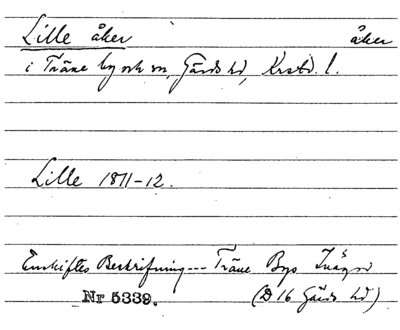 Lille åker åker
i Träne by och sn, Gärds hd, Krstd. l.
Lille 1811-12.
Enskiftes Beskrifning --- Träne Bys Inägor
Nr 5339. (D 16 Gärds hd)